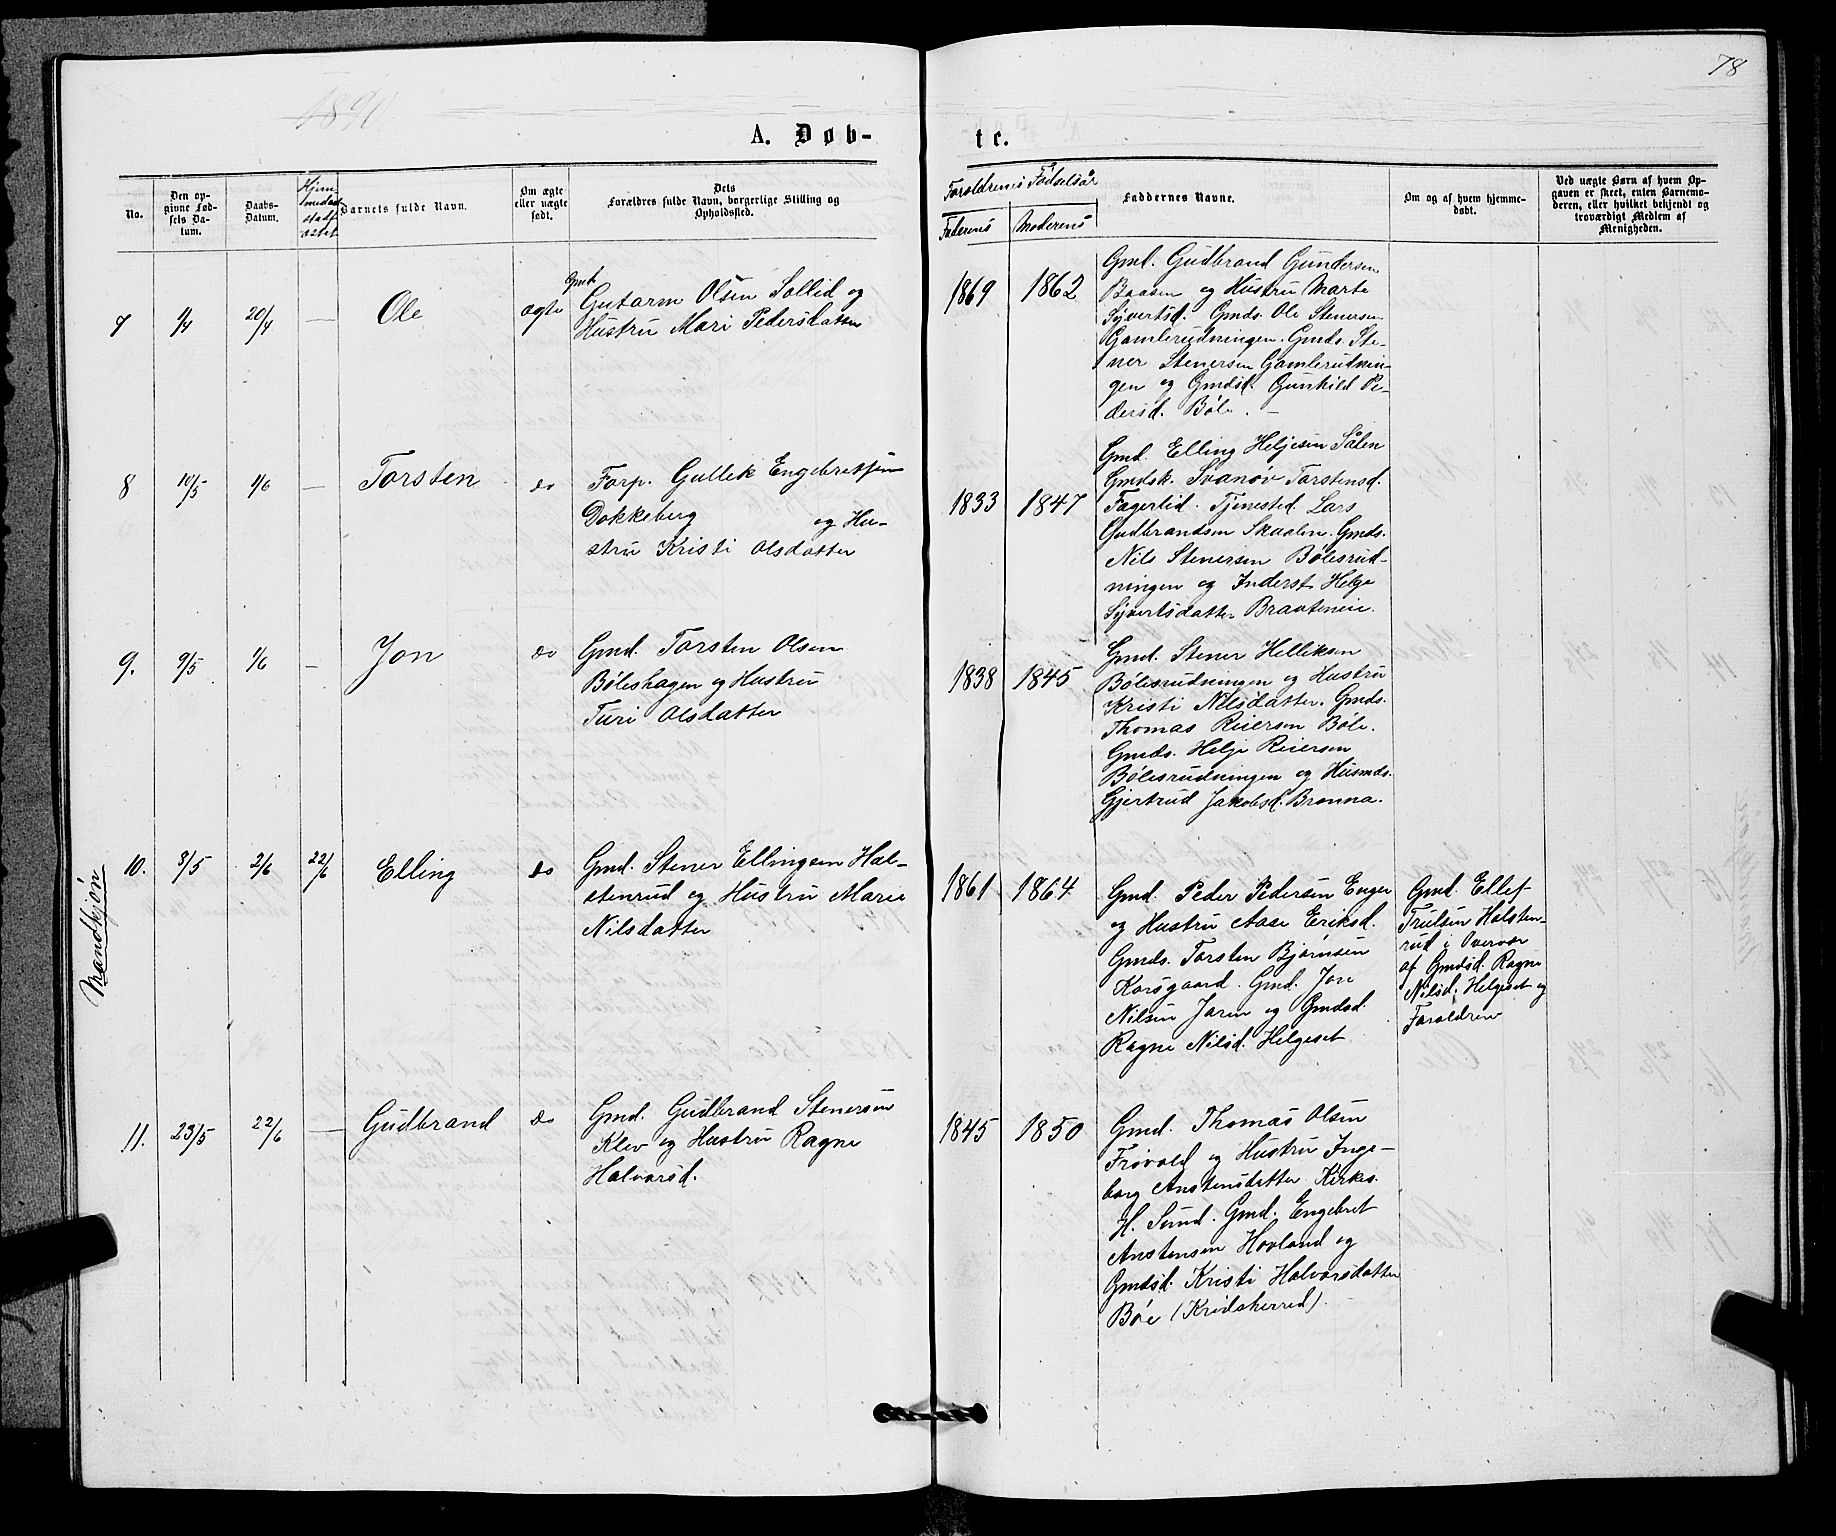 78
1890
A. Døb-
te.
No.
Den op-
givne Fød-
sels Da-
tum.
Daabs-
Datum.
Hjem-
medaab
stadf
æstet
Barnets fulde Navn.
Om ægte
eller uægte
født.
Dets
Forældres fulde Navn, borgerlige Stilling og
Opholdssted.
Forældrenes Fødselsår
Faderens
Moderens
Faddernes Navne.
Om og af hvem hjemme-
døbt.
Ved uægte Børn af hvem Op-
gaven er skeet, enten Barnemo-
deren, eller hvilket bekjendt og
troværdigt Medlem af
Menigheden.
Mandkjøn
7
1/4
20/4
—
Ole
ægte
Gmd.
Gutorm Olsen Sollid og
Hustru Mari Pedersdatter
1869
1862
Gmd. Gudbrand Gundersen
Baasen og Hustru Marte
Syvertsd. Gmds. Ole Stenersen
Gamlerudningen. Gmds. Ste-
ner Stenersen Gamlerudnin-
gen og Gmdsd. Gunhild Pe-
dersd. Bøle. —
8
10/5
1/6
—
Torsten
do
Forp. Gullek Engebretsen
Dokkeberg og Hu-
stru Kristi Olsdatter
1833
1847
Gmd. Elling Heljesen Sålen
Gmdsk. Svanøv Torstensd.
Fagerlid. Tjenested. Lars
Gudbrandsen Skaalen. Gmds.
Nils Stenersen Bølesrud-
ningen og Inderst Helge
Syvertsdatter Braateneie.
9.
9/5
1/6
—
Jon
do
Gmd. Torsten Olsen
Bøleshagen og Hustru
Turi Olsdatter
1838
1845
Gmd. Stener Helliksen
Bølesrudningen og Hustru
Kristi Nilsdatter. Gmds.
Thomas Reiersen Bøle.
Gmds. Helje Reiersen
Bølesrudningen og Husmds.
Gjertrud Jakobsd. Brenna.
10.
3/5
2/6
22/6
Elling
do
Gmd. Stener Ellingsen Hal-
stenrud og Hustru Marie
Nilsdatter
1861
1864
Gmd. Peder Pedersen Enger
og Hustru Aase Eriksd.
Gmds. Torsten Bjørnsen
Korsgaard. Gmd. Jon
Nilsen Jaren og Gmdsd.
Ragne Nilsd. Helgeset
Gmd. Ellef
Trulsen Halsten-
rud i Overvær
af Gmdsd. Ragne
Nilsd. Helgeset og
Forældrene
11.
23/5
22/6
—
Gudbrand
do
Gmd. Gudbrand Stenersen
Klev og Hustru Ragne
Halvorsd.
1845
1850
Gmd. Thomas Olsen
Frøvold og Hustru Inge-
borg Anstensdatter. Kirkes.
H. Sund. Gmd. Engebret
Anstensen Hovland og
Gmdsd. Kristi Halvorsdatter
Bøe (Krødsherred).